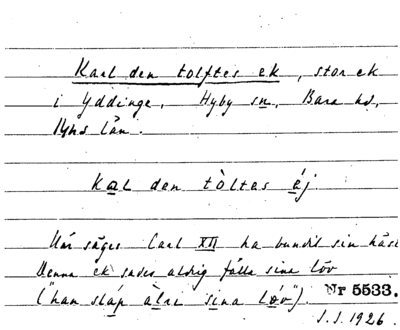 Karl den tolftes ek, stor ek
i Yddinge, Hyby sn, Bara hd,
Mhs län.
Kal den tòltas éj
Här säges Carl XII ha bundit sin häst
Denna ek sades aldrig fälla sina löv
("han släp àlri sina löv").
Nr 5533.
S.S. 1926.